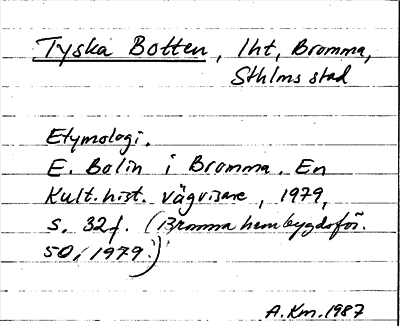 Tyska Botten, lht, Bromma,
Sthlms stad
Etymologi.
E. Bolin i Bromma. En
Kult.hist. vägvisare, 1979,
s. 32f. (Bromma hembygdsför.
50, 1979.)
A.Km.1987